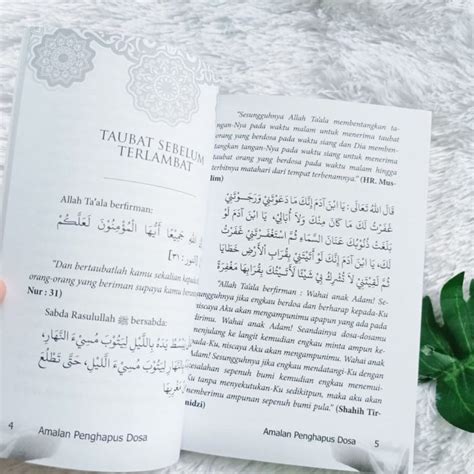 TAUBAT SEBELUM
TERLAMBAT
Allah Ta'ala berfirman:
جَمِيعًا أَيُّهَا الْمُؤْمِنُونَ لَعَلَّكُمْ
[النور : ٣١]
"Dan bertaubatlah kamu sekalian kepada
orang-orang yang beriman supaya kamu
Nur : 31)
Sabda Rasulullah ﷺ bersabda:
يَبْسُطُ يَدَهُ بِاللَّيْلِ لِيَتُوبَ مُسِيءُ النَّهَارِ،
بِالنَّهَارِ لِيَتُوبَ مُسِيءُ اللَّيْلِ، حَتَّى تَطْلُعَ
مِنْ مَغْرِبِهَا
4
Amalan Penghapus Dosa
"Sesungguhnya Allah Ta'ala membentangkan ta-
ngan-Nya pada waktu malam untuk menerima taubat
orang yang berdosa pada waktu siang dan Dia memben-
tangkan tangan-Nya pada waktu siang untuk menerima
taubat orang yang berdosa pada waktu malam hingga
terbitnya matahari dari tempat terbenamnya." (HR. Mus-
lim)
قَالَ اللهُ تَعَالَى : يَا ابْنَ آدَمَ إِنَّكَ مَا دَعَوْتَنِي وَرَجَوْتَنِي
غَفَرْتُ لَكَ عَلَى مَا كَانَ مِنْكَ وَلَا أُبَالِي، يَا ابْنَ آدَمَ لَوْ
بَلَغَتْ ذُنُوبُكَ عَنَانَ السَّمَاءِ ثُمَّ اسْتَغْفَرْتَنِي غَفَرْتُ
لَكَ، يَا ابْنَ آدَمَ لَوْ أَتَيْتَنِي بِقُرَابِ الْأَرْضِ خَطَايَا
ثُمَّ لَقِيتَنِي لَا تُشْرِكُ بِي شَيْئًا لَأَتَيْتُكَ بِقُرَابِهَا مَغْفِرَةً
"Allah Ta'ala berfirman : Wahai anak Adam! Se-
sungguhnya jika engkau berdoa dan berharap kepada-Ku
niscaya Aku akan mengampunimu apapun yang ada pada
Wahai anak Adam! Seandainya dosa-dosamu
menjulang ke langit kemudian engkau minta ampun ke-
pada-Ku, niscaya Aku akan mengampunimu. Wahai anak
Adam! Sesungguhnya jika engkau mendatangi-Ku dengan
sepenuh bumi kemudian engkau menemui-
Ku tanpa menyekutukan-Ku sedikitpun, maka aku akan
memberimu ampunan sepenuh bumi pula." (Shahih Tir-
midzi)
Amalan Penghapus Dosa
5